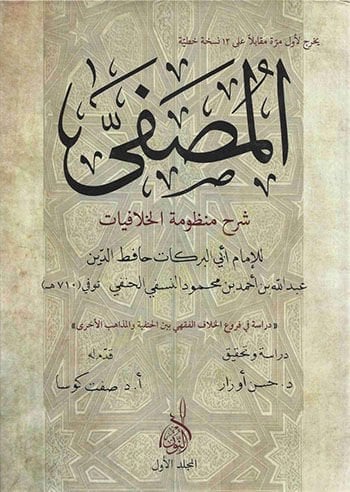 يخرج لأول مرّة مقابلاً على ١٢ نسخة خطيّة
المُصَفَّى
شرح منظومة الخلافيات
للإمام أبي البركات حافظ الدين
عبدالله بن أحمد بن محمود النسفي الحنفي توفي (٧١٠ هـ)
«دراسة في فروع الخلاف الفقهي بين الحنفية والمذاهب الأخرى»
دراسة وتحقيق
د. حسن أوزار
قدّم له
أ. د صفت كوسا
النور
المجلد الأول